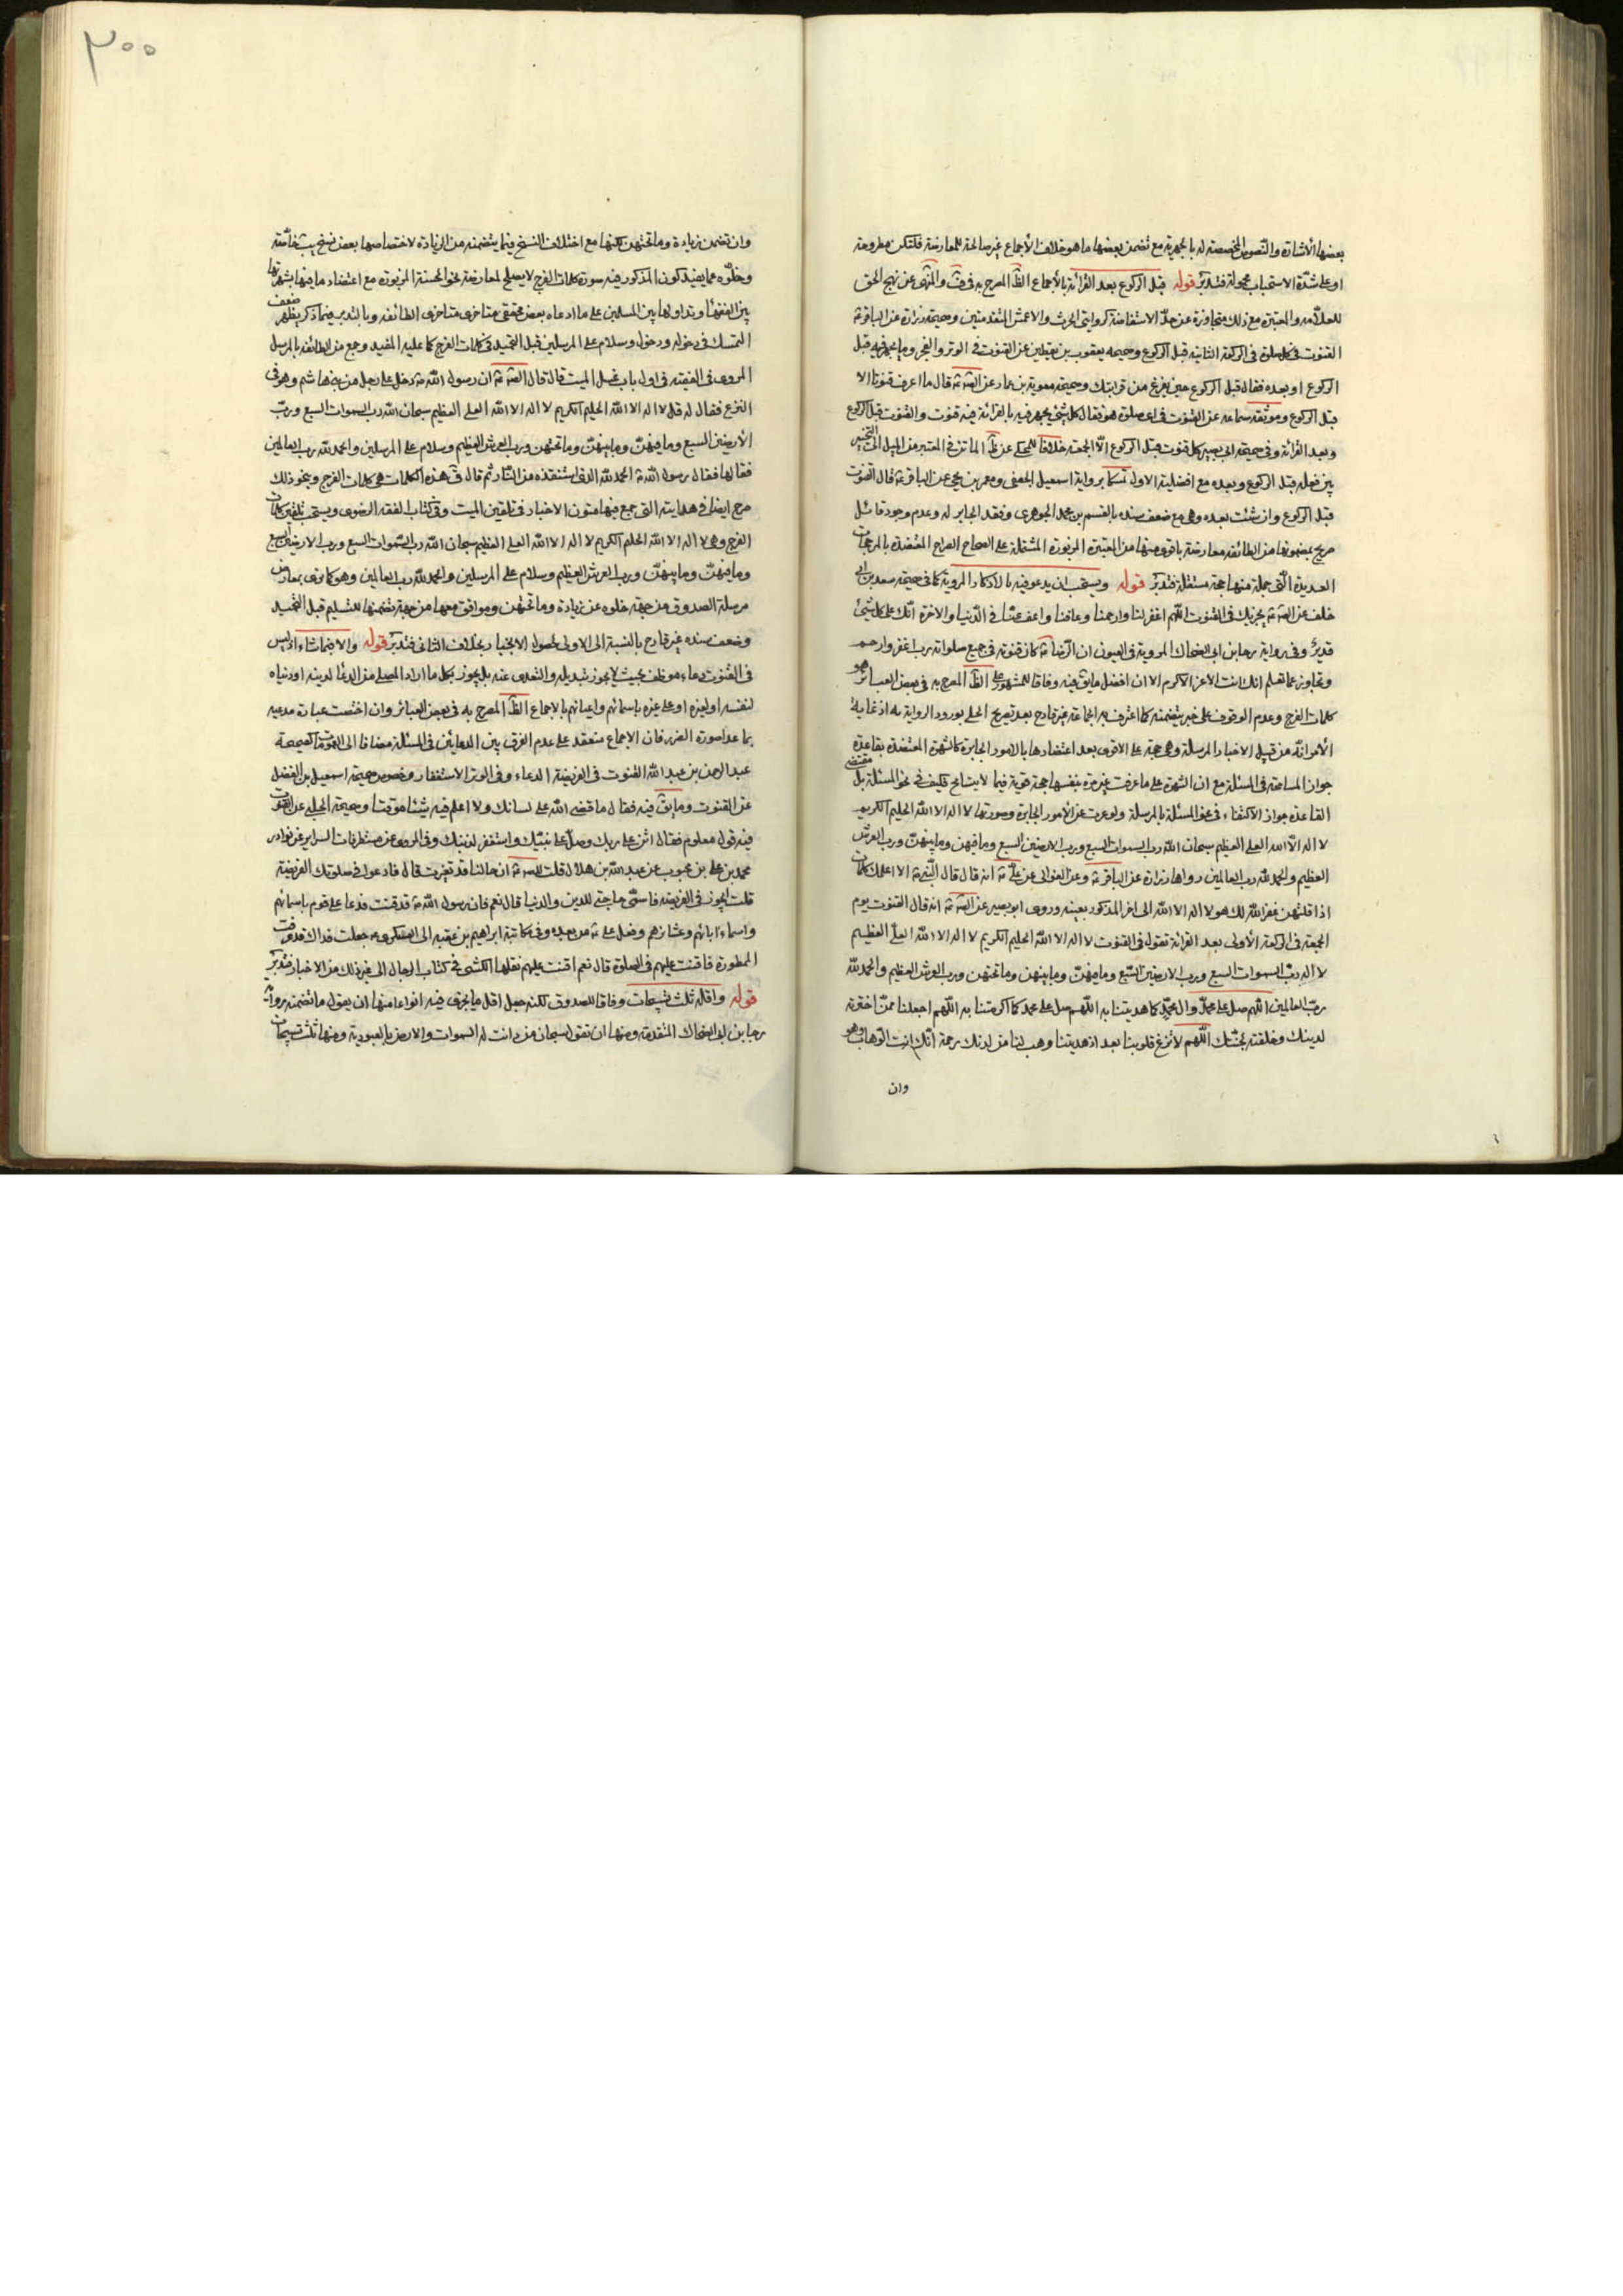 بعضها الأشارة والنصوص المخصصة له بالجهرية مع تضمن بعضها ما هو خلاف الأجماع غير صالحة للمعارضة فلتكن مطروحة
او على شدّة الاستحباب محمولة فتدبّر قوله قبل الركوع بعد القرائة بالأجماع الظّ المصرح به في والمنتهى عن نهج الحق
للعلّامه والمعتبرة مع ذلك متجاوزة عن حدّ الاستفاضة كروايتى الحرث والاعمش المتقدمتين وصحيحة زرارة عن الباقر ع
القنوت في كل صلوة في الركعة الثانية قبل الركوع وصحيحه يعقوب بن يقطين عن القنوت في الوتر والفجر وما يجهر فيه قبل
الركوع او بعده فقال قبل الركوع حين يفرغ من قرائتك وصحيحة معوية بن عمار عن الصّ ع قال ما اعرف قنوتا الا
قبل الركوع وموثقه سماعه عن القنوت في اى صلوة هو فقال كل شئ يجهر فيه بالقرائة فيه قنوت والقنوت قبل الركوع
وبعد القرائة وفي صحيحة ابى بصير كل قنوت قبل الركوع الّا الجمعة خلافا للمحكى عن ظّ الماتن في المعتبر من الميل الى التخيير
بين فعله قبل الركوع وبعده مع افضلية الاول تمسكا برواية اسمعيل الجعفى ومعمر بن يحيى عن الباقر ع قال القنوت
قبل الركوع وان شئت بعده وهى مع ضعف سنده بالقسم بن محمد الجوهرى وفقد الجابر له وعدم وجود قائل
صريح بمضمونها من الطائفه معارضة باقوى منها من المعتبرة المزبورة المشتملة على الصحاح الصراح المعتضدة بالمرجحات
العديدة الّتى جملة منها حجة مستقلة فتدبّر قوله ويستحب ان يدعو فيه بالاذكار المروية كما في صحيحة سعد بن ابى
خلف عن الصّ ع يجزيك في القنوت اللّهم اغفر لنا وارحمنا وعافنا واعف عنّا في الدّنيا والاخرة انّك على كل شئ
قدير وفي رواية رجا بن ابى الضحاك المروية في العيون ان الرّضا ع كان قنوته في جميع صلواته رب اغفر وارحم
وتجاوز عما تعلم انك انت الاعز الاكرم الا ان افضل ما يق فيه وفاقا للمشهور على الظّ المصرح به في بعض العبائر هو
كلمات الفرج وعدم الوقوف على خبر يتضمنه كما اعترف به الجماعة غير قادح بعد تصريح الحلى بورود الرواية به اذ غاية
الأمر انّه من قبيل الاخبار المرسلة وهى حجة على الاقوى بعد اعتضادها بالامور الجابرة كالشهرة المعتضدة بقاعدة
جواز المسامحة في المسئلة مع ان الشهرة على ما عرفت غير مرة بنفسها حجة قوية فيما لا يتسامح فكيف في نحو المسئلة بل مقتضى
القاعدة جواز الاكتفاء في نحو المسئلة بالمرسلة ولو عريت عن الأمور الجابرة وصورتها لا اله الا اللّه الحليم الكريم
لا اله الّا اللّه العلى العظيم سبحان اللّه رب السموات السبع ورب الارضين السبع وما فيهن وما بينهنّ ورب العرش
العظيم والحمد للّه رب العالمين رواها زرارة عن الباقر ع وعن الغوالى عن علّى ع انه قال قال النّبى ص الا اعلمك كلمات
اذا قلتهن غفر اللّه لك هو لا اله الا اللّه الى اخر المذكور بعينه وروى ابو بصير عن الصّ ع انه قال القنوت يوم
الجمعة في الركعة الأولى بعد القرائة تقول في القنوت لا اله الا اللّه الحليم الكريم لا اله الا اللّه العلّى العظيم
لا اله ربّ السموات السبع ورب الارضين السّبع وما فيهنّ وما بينهن وما تحتهن ورب العرش العظيم والحمد للّه
ربّ العالمين اللّهم صل على محمّد وال محمّد كما هديتنا به اللّهم صل على محمد كما اكرمتنا به اللّهم اجعلنا ممّن اخترته
لدينك وخلقته لجنّتك اللّهم لا تزغ قلوبنا بعد اذ هديتنا وهب لنا من لدنك رحمة انّك انت الوّهاب وهو
وان
٢٠٠
وان تضمن زيادة وما تحتهن لكنها مع اختلاف النسخ فيما يتضمنه من الزيادة لاختصاصها بعض نسخ يب خاصّة
وخلّوه عما يفيد كون المذكور فيه صورة كلمات الفرج لا يصلح لمعارضة نحو الحسنة المزبورة مع اعتضاد ما فيها بشهرتها
بين الفقهاء وتداولها بين المسلمين على ما ادعاه بعض محققى متاخرى متاخرى الطائفه وبالتدبر فيما ذكر يظهر ضعف
التمسك في دخوله ودخول وسلام على المرسلين قبل التحميد في كلمات الفرج كما عليه المفيد وجمع من الطائفه بالمرسل
المروى في الفقيه في اول باب غسل الميت قال قال الصّ ع ان رسول اللّه ص دخل على رجل من بنى هاشم وهو في
النزع فقال له قل لا اله الا اللّه الحليم الكريم لا اله الا اللّه العلى العظيم سبحان اللّه رب السموات السبع وربّ
الأرضين السبع وما فيهنّ وما بينهنّ وما تحتهن ورب العرش العظيم وسلام على المرسلين والحمد للّه رب العالمين
فقالها فقال رسول اللّه ص الحمد للّه الذى استنقذه من النّار ثم قال في هذه الكلمات هى كلمات الفرج وبنحو ذلك
صرح ايضا في هدايته التى جمع فيها متون الاخبار في تلقين الميت وفي كتاب الفقه الرضوى ويستحب تلقين كلمات
الفرج وهى لا اله الا اللّه الحليم الكريم لا اله الا اللّه العلى العظيم سبحان اللّه رب السّموات السبع ورب الارضين السبع
وما فيهنّ وما بينهنّ ورب العرش العظيم وسلام على المرسلين والحمد للّه رب العالمين وهو كما ترى معارض
مرسلة الصدوق من جهة خلوه عن زيادة وما تحتهن وموافق معها من جهة تضمنها للتسليم قبل التحميد
وضعف سنده غير قادح بالنسبة الى الاولى لحصول الانجبار بخلاف الثانى فتدبّر قوله والا فبما شاء اذ ليس
في القنوت دعاء موظف بحيث لا يجوز تبديله والتعدى عنه بل يجوز بكل ما اراد المصلى من الدعّاء لدينه او دنياه
لنفسه او لغيره او على غيره باسمائهم واعيانهم بالاجماع الظّ المصرح به في بعض العبائر وان اختصت عبارة مدعيه
بما عدا صورة الضرر فان الاجماع منعقد على عدم الفرق بين الدعائين في المسئلة مضافا الى العمومات كصحيحة
عبد الرحمن بن عبد اللّه القنوت في الفريضة الدعاء وفي الوتر الاستغفار وخصوص صحيحة اسمعيل بن الفضل
عن القنوت وما يق فيه فقال ما قضى اللّه على لسانك ولا اعلم فيه شيئا موقتا وصحيحة الحلبى عن القنوت
فيه قول معلوم فقال اثن على ربك وصلّ على نبيّك واستغفر لذنبك وفي المروى عن مستطرفات السراير عن نوادر
محمد بن على بن محبوب عن عبد اللّه بن هلال قلت للصّ ع ان حالنا قد تغيرت قال فادعو في صلوتك الفريضة
قلت ايجوز في الفريضة فاسمّى حاجتى للدين والدنيا قال نعم فان رسول اللّه ص قد قنت فدعا على قوم باسمائهم
واسماء ابائهم وعشائرهم وفعل على ع من بعده وفي مكاتبة ابراهيم بن عقبه الى العسكرى ع جعلت فداك قد عرفت
الممطورة فاقنت عليهم في الصلوة قال نعم اقنت عليهم نقلها الكشى في كتاب الرجال الى غير ذلك من الاخبار فتدبّر
قوله واقله ثلث تسبيحات وفاقا للصدوق لكنه جعل اقل ما يجزى فيه انواعا منها ان يقول ما تضمنه رواية
رجا بن ابى الضحاك المتقدمة ومنها ان تقول سبحان من دانت له السموات والارض بالعبودية ومنها ثلث تسبيحات